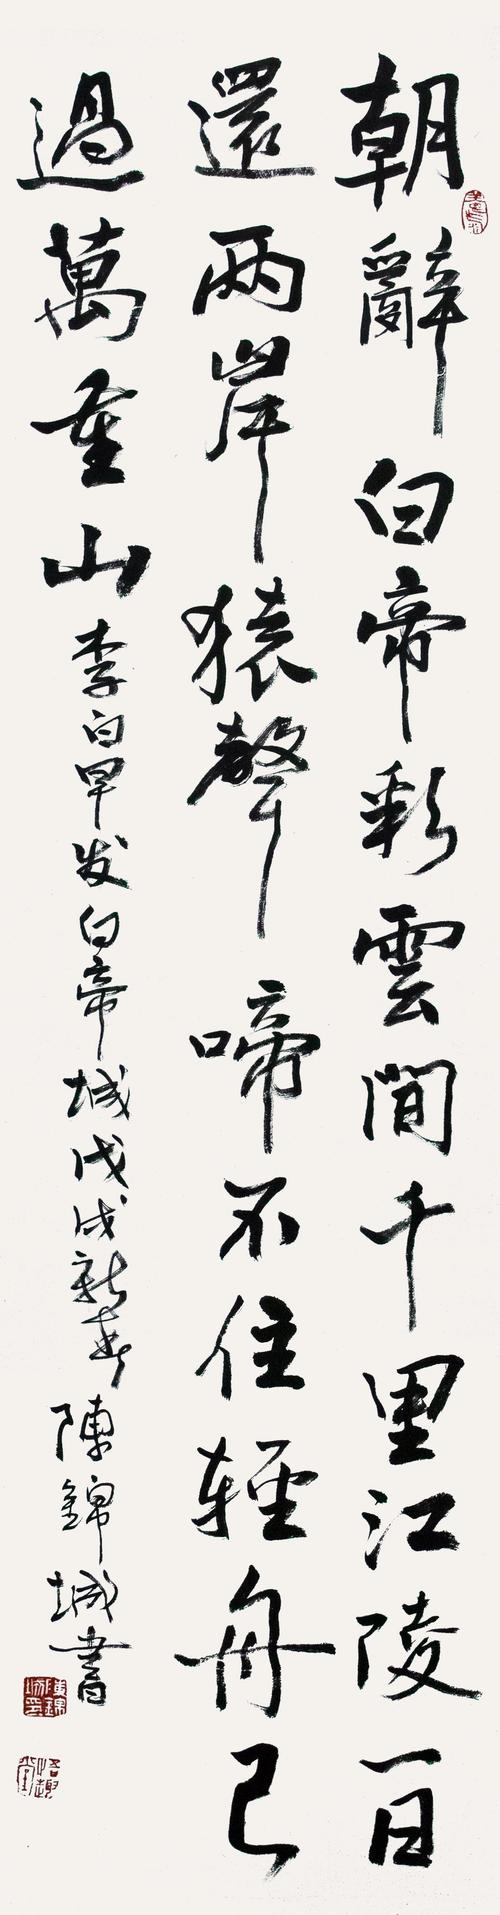 朝辭白帝彩雲間千里江陵一日
還兩岸猿聲啼不住輕舟已
過萬重山 李白早发白帝城戊戌新春 陳錦城書